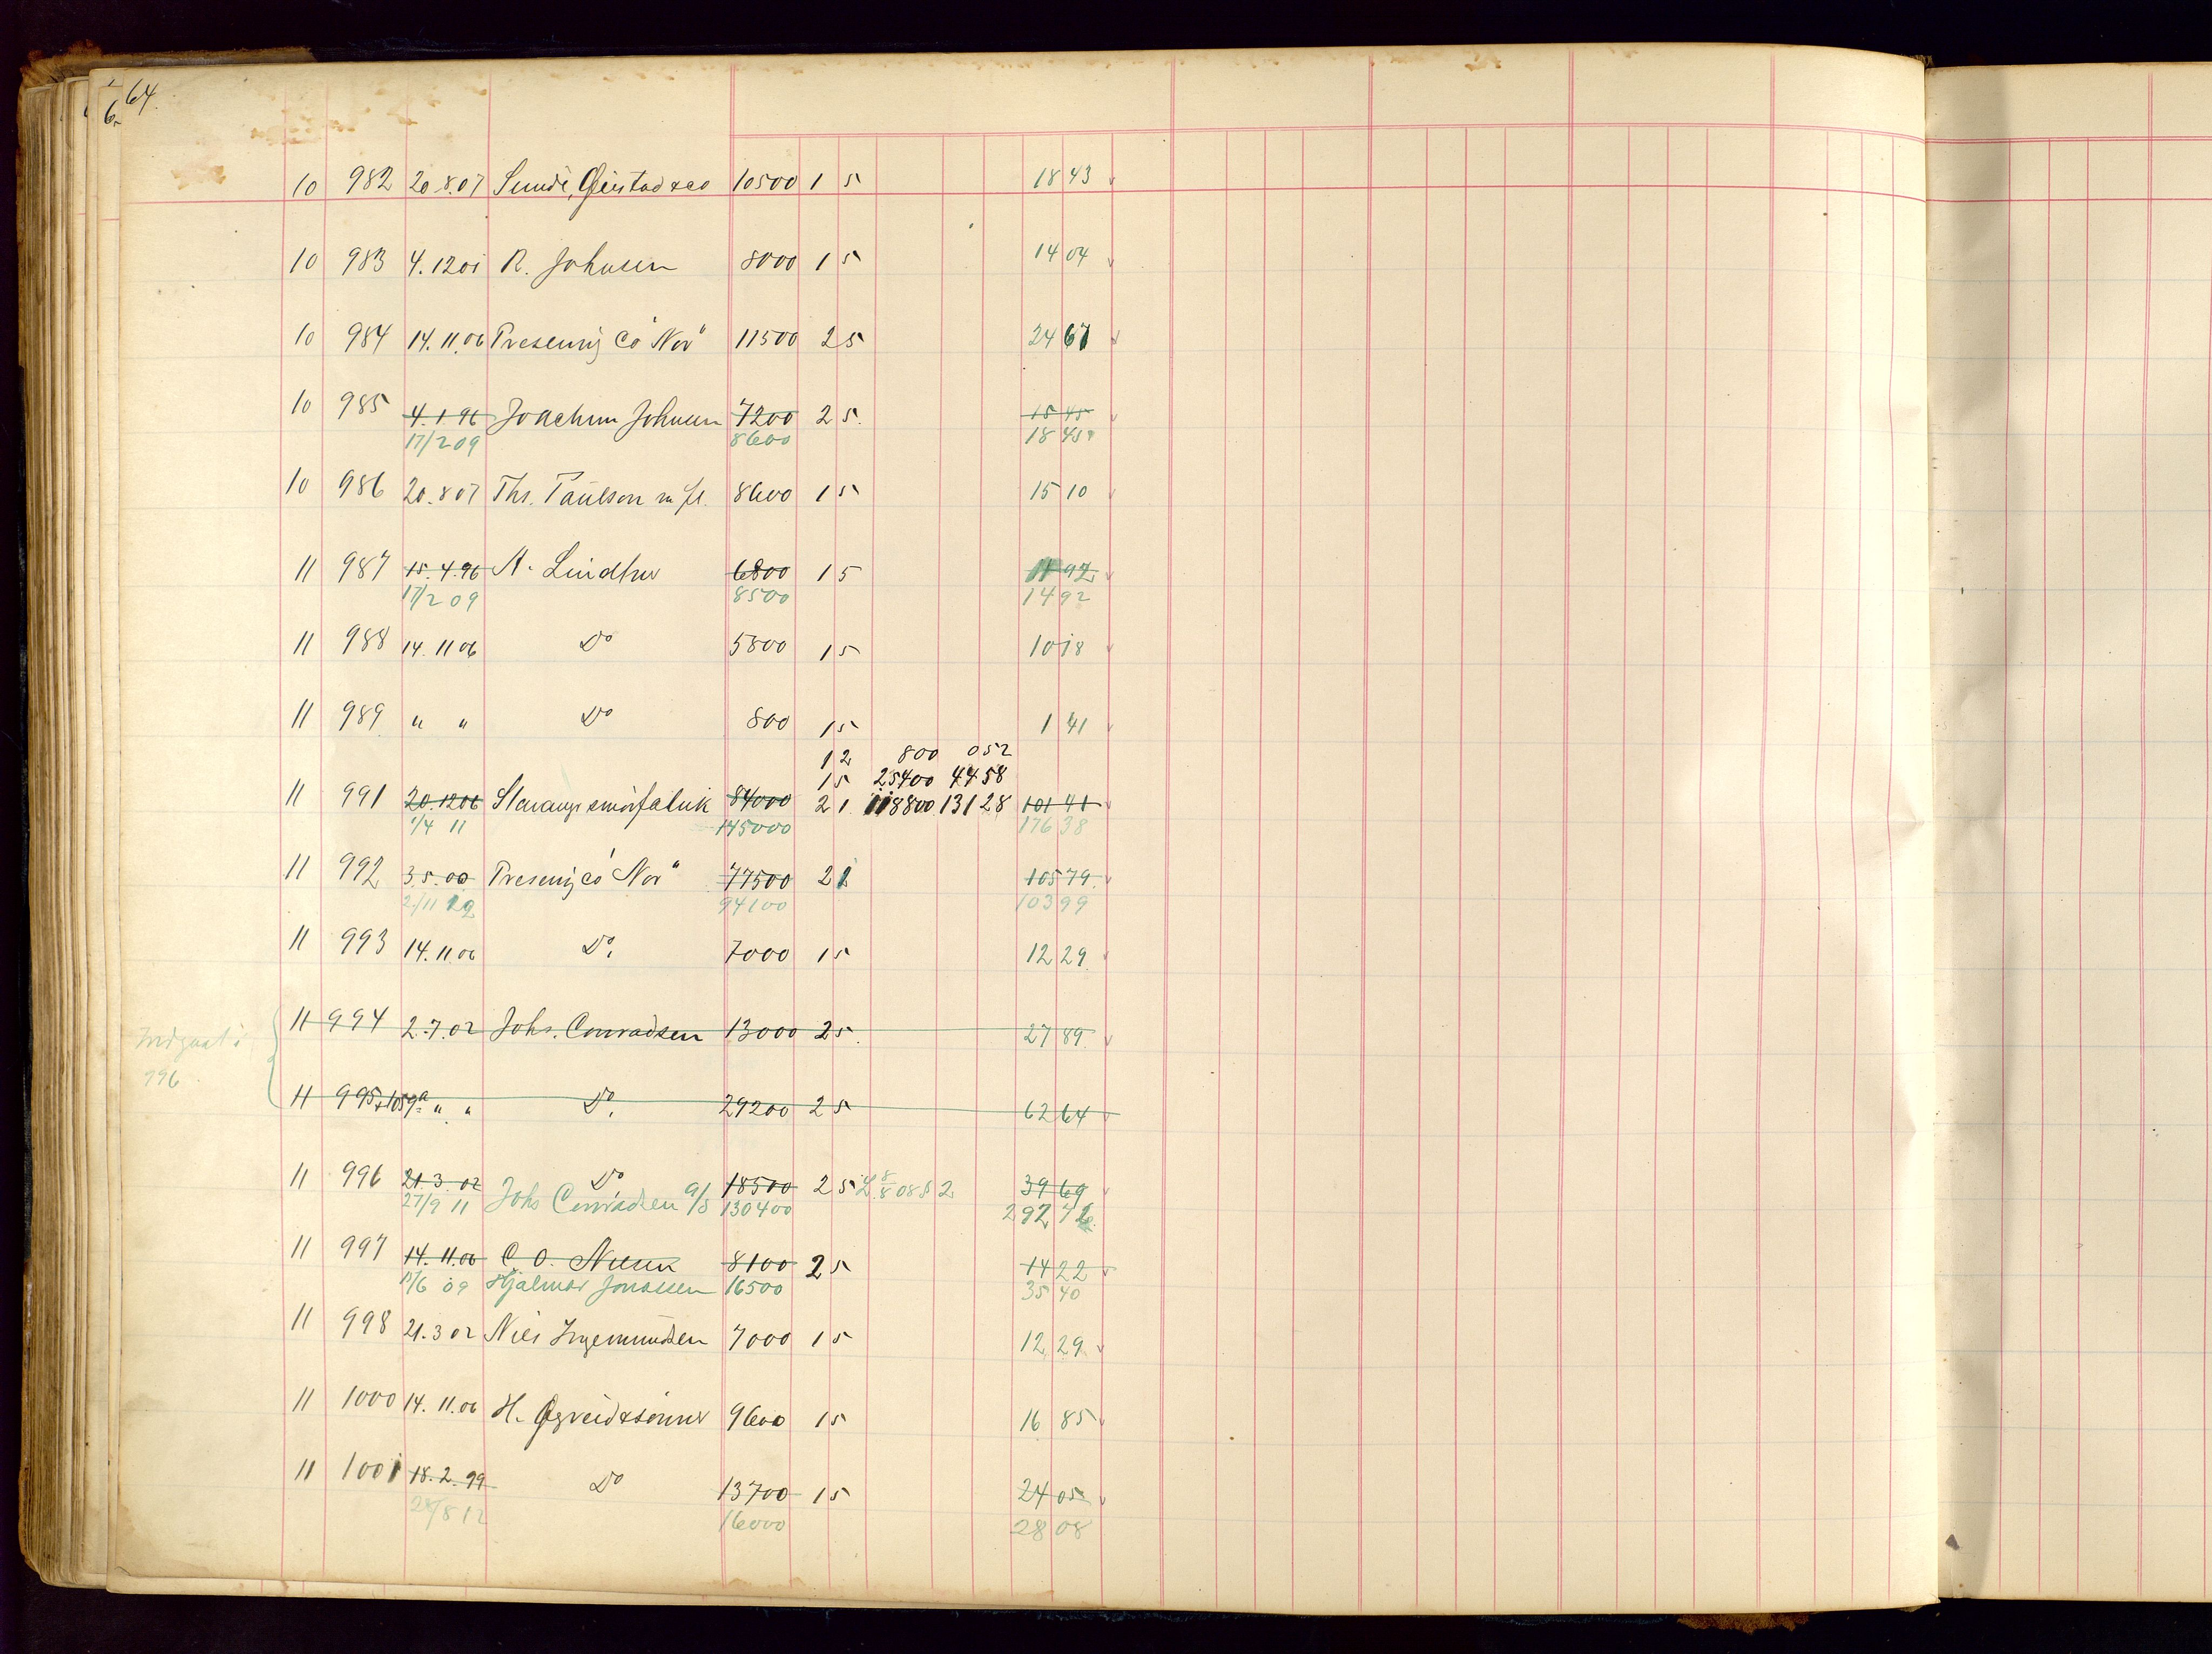 64.
6.
10 982 20.8.07 Sunde, Gjestad & Co 10500 1 5 18 43
10 983 4.1201 R. Johnsen 8000 1 5 14 04
10 984 14.11.06 Presennig Co "Nor" 11500 2 5 24 67
10 985 4.1.96 Joachim Johnsen 7200 2 5. 15 45
17/2 09 8600 18 45
10 986 20.8 07 Ths. Paulson m fl. 8600 1 5 15 10
11 987 15.4.96 A. Lindtner 6800 1 5 11 92
17/2 09 8500 14 92
11 988 14.11 06 Do 5800 1 5 10 18
11 989 " " Do 800 1 5 1 41
1 2 800 0 52
1 5 25400 44 58
11 991 20.1206 Stavang. smörfabrik 84000 2 1 118800 131 28 101 41
1/4 11 145000 176 38
11 992 3.5.00 Presennig Co "Nor" 77500 2 1 105 79
2/11 12 94100 103 99
11 993 14.11.06 Do. 7000 1 5 12 29
11 994 2.7.02 Johs. Conradsen 13000 2 5. 27 89
Indgaat i
996
11 995+1059a " " Do. 29200 2 5 62 64
11 996 21.3.02 Do 18500 2 5 8/8 08 § 2 39 69
27/9 11 Johs Conradsen a/s 130400 292 72
11 997 14.11.06 C. O. Nilsen 8100 2 5 14 22
17/6 09 Hjalmar Jonassen 16500 35 40
11 998 21.3 02 Niels Ingemundsen 7000 1 5 12 29
11 1000 14.11.06 H. Øgreid & sönner 9600 1 5 16 85
11 1001 18.2.99 Do 13700 1 5 24 05
28/8 12 16000 28 08